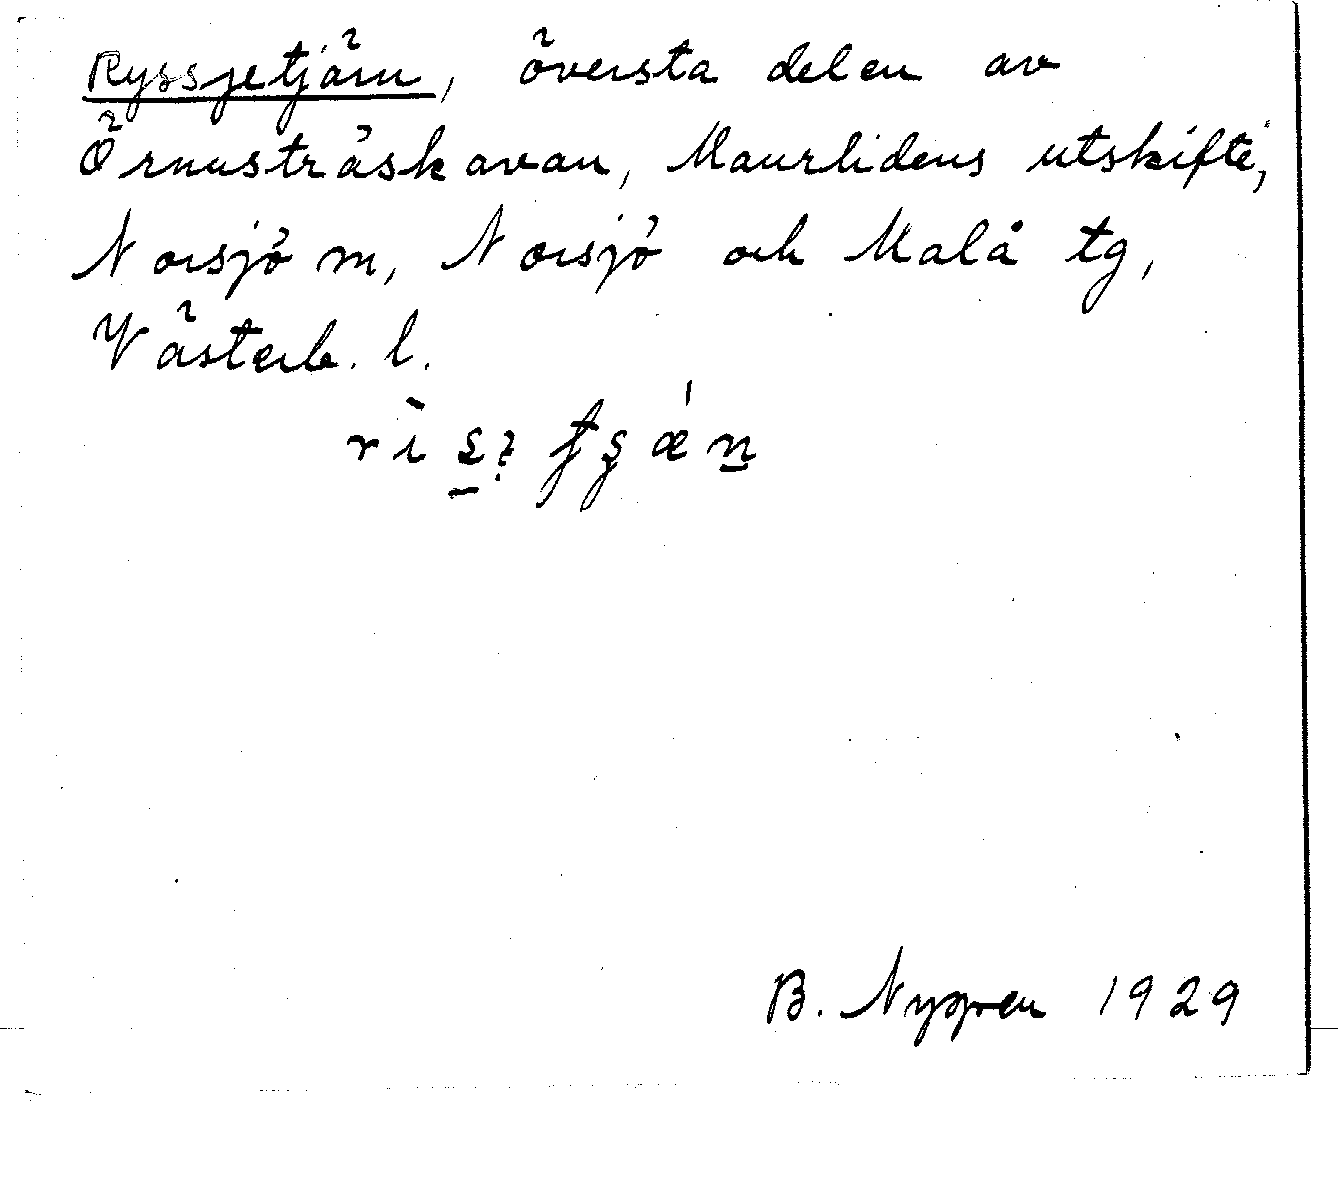 Ryssjetjärn, översta delen av
Örnusträskavan, Maurlidens utskifte,
Norsjö m, Norsjö och Malå tg,
Västerb. l.
B. Nygren 1929